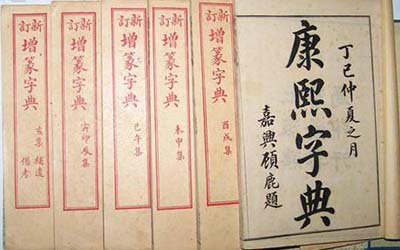 丁巳仲夏之月
康熙字典
嘉興顧鹿題
新訂增篆字典
酉戌集
新訂增篆字典
未申集
新訂增篆字典
巳午集
新訂增篆字典
寅卯辰集
新訂增篆字典
亥集 補遺
備考